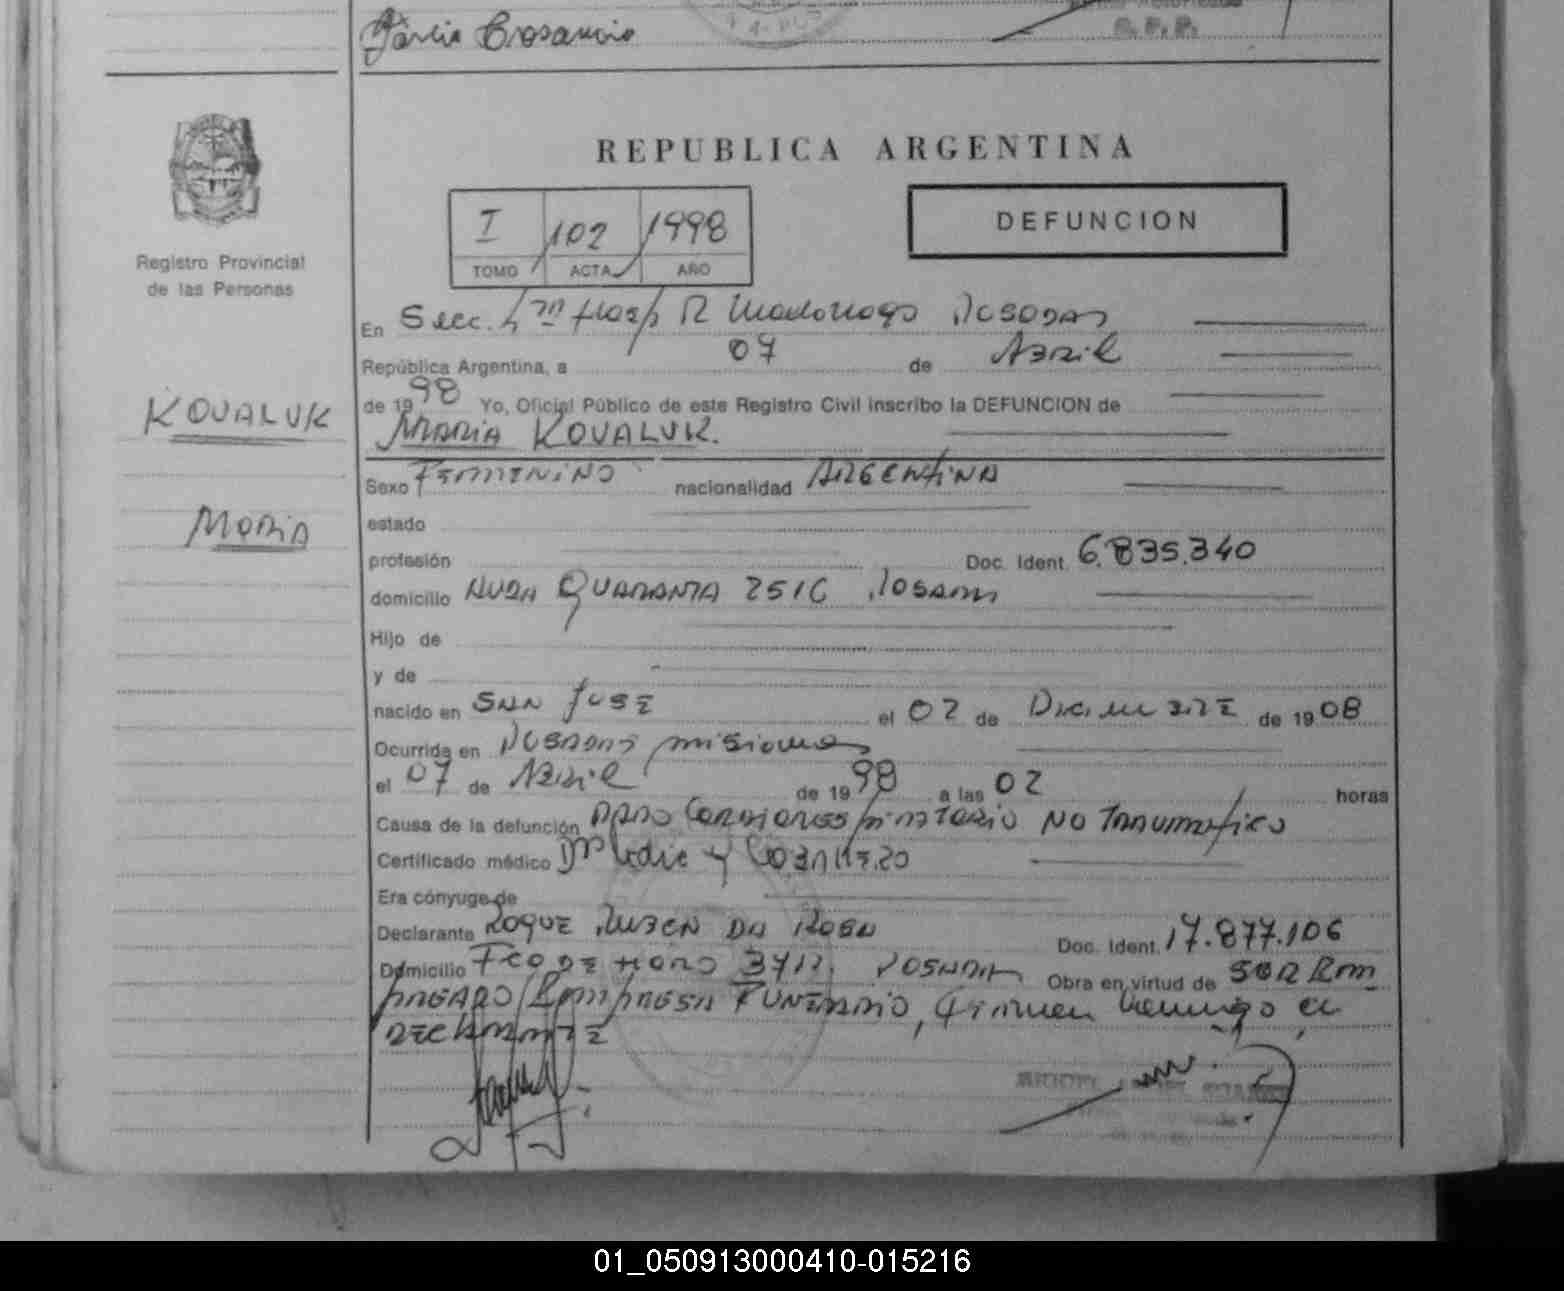 REPUBLICA ARGENTINA
I 102 1998
TOMO ACTA AÑO
DEFUNCION
Registro Provincial
de las Personas
KOVALUK
MARIA
En Secc. Hosp R Madariaga POSADAS
República Argentina, a 07 de ABRIL
de 1998 Yo, Oficial Público de este Registro Civil inscribo la DEFUNCION de
MARIA KOVALUK.
Sexo FEMENINO nacionalidad ARGENTINA
estado
profesión Doc. Ident. 6.835.340
domicilio AVDA QUARANTA 2516 POSADAS
Hijo de
y de
nacido en SAN JOSE el 02 de DICIEMBRE de 1908
Ocurrida en POSADAS misiones
el 07 de ABRIL de 1998 a las 02 horas
Causa de la defunción PARO CARDIORESPIRATORIO NO TRAUMATICO
Certificado médico
Era cónyuge de
Declarante ROQUE RUBEN DA ROSA Doc. Ident. 17.877.106
Domicilio FCO DE HARO POSADAS Obra en virtud de SER EM
PLEADO EMPRESA FUNERARIO, Firman conmigo el
DECLARANTE
01_050913000410-015216